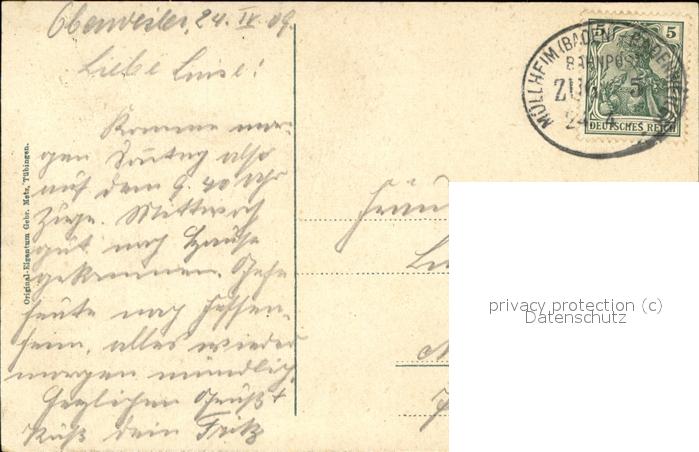 Oberweiler, 24. IV. 09.
Liebe Luise!
Komme mor-
gen Sonntag also
auf dem 9.40 Uhr
Zuge. Mittwoch
gut nach Hause
gekommen. Gehe
heute nach Hessen-
heim, alles wieder
morgen mündlich.
Herzlichen Gruß +
Kuß dein Fritz
Original-Eigentum Gebr. Metz, Tübingen.
MÜLLHEIM (BADEN)
BAHNPOST
ZUG 5
24 4
5 5
DEUTSCHES REICH
Fräu
privacy protection (c)
Datenschutz